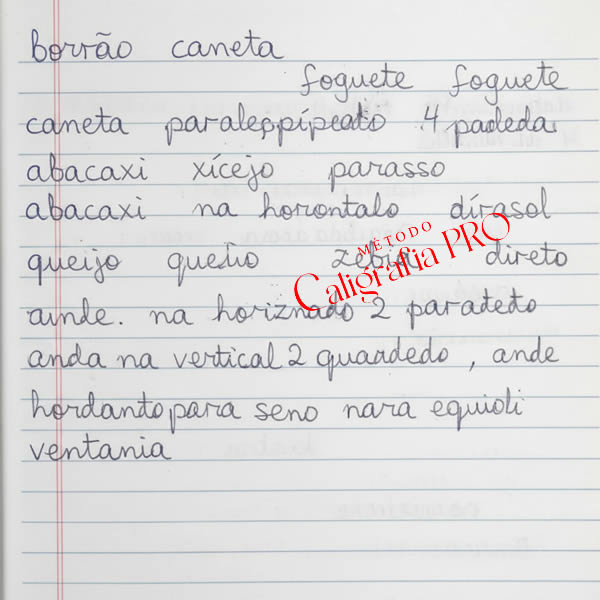 borrão caneta
foguete foguete
caneta 4
abacaxi xícejo parasso
abacaxi na horontalo dírasol
MÉTODO
Caligrafia PRO
queijo direto
ainde. na horiznado 2
anda na vertical 2 quardedo, ande
hordanto para seno nara equioli
ventania